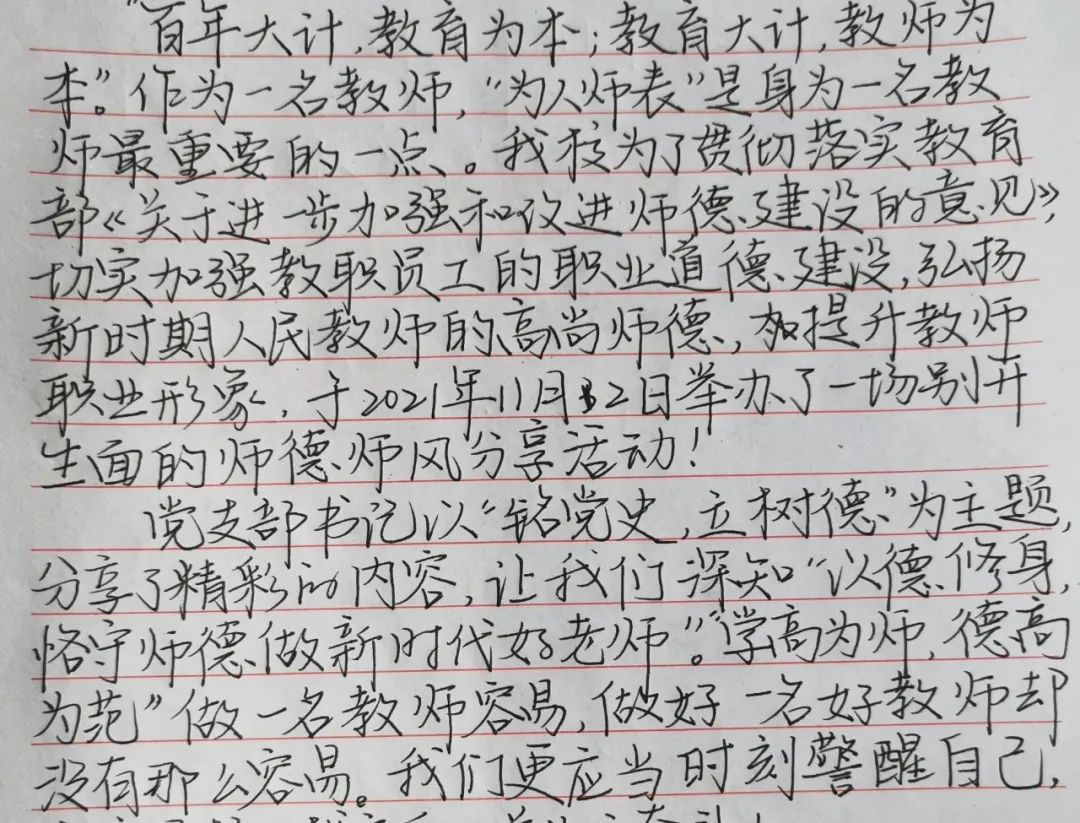 "百年大计,教育为本;教育大计,教师为
本"。作为一名教师,"为人师表"是身为一名教
师最重要的一点。我校为了贯彻落实教育
部《关于进一步加强和改进师德建设的意见》,
切实加强教职员工的职业道德建设,弘扬
新时期人民教师的高尚师德,提升教师
职业形象,于2021年11月12日举办了一场别开
生面的师德师风分享活动!
党支部书记以"铭党史,立树德"为主题,
分享了精彩的内容,让我们深知"以德修身,
恪守师德做新时代好老师"。"学高为师,德高
为范"做一名教师容易,做好一名好教师却
没有那么容易。我们更应当时刻警醒自己,